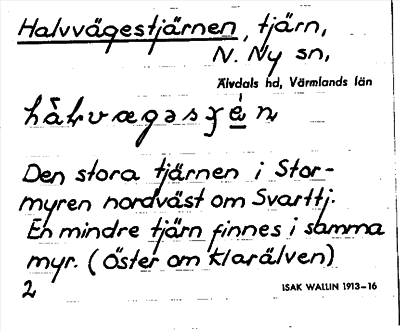 Halvvägestjärnen, tjärn,
N. Ny sn,
Älvdals hd, Värmlands län
Den stora tjärnen i Stor-
myren nordväst om Svarttj.
En mindre tjärn finnes i samma
myr. (Öster om Klarälven)
2
ISAK WALLIN 1913–16